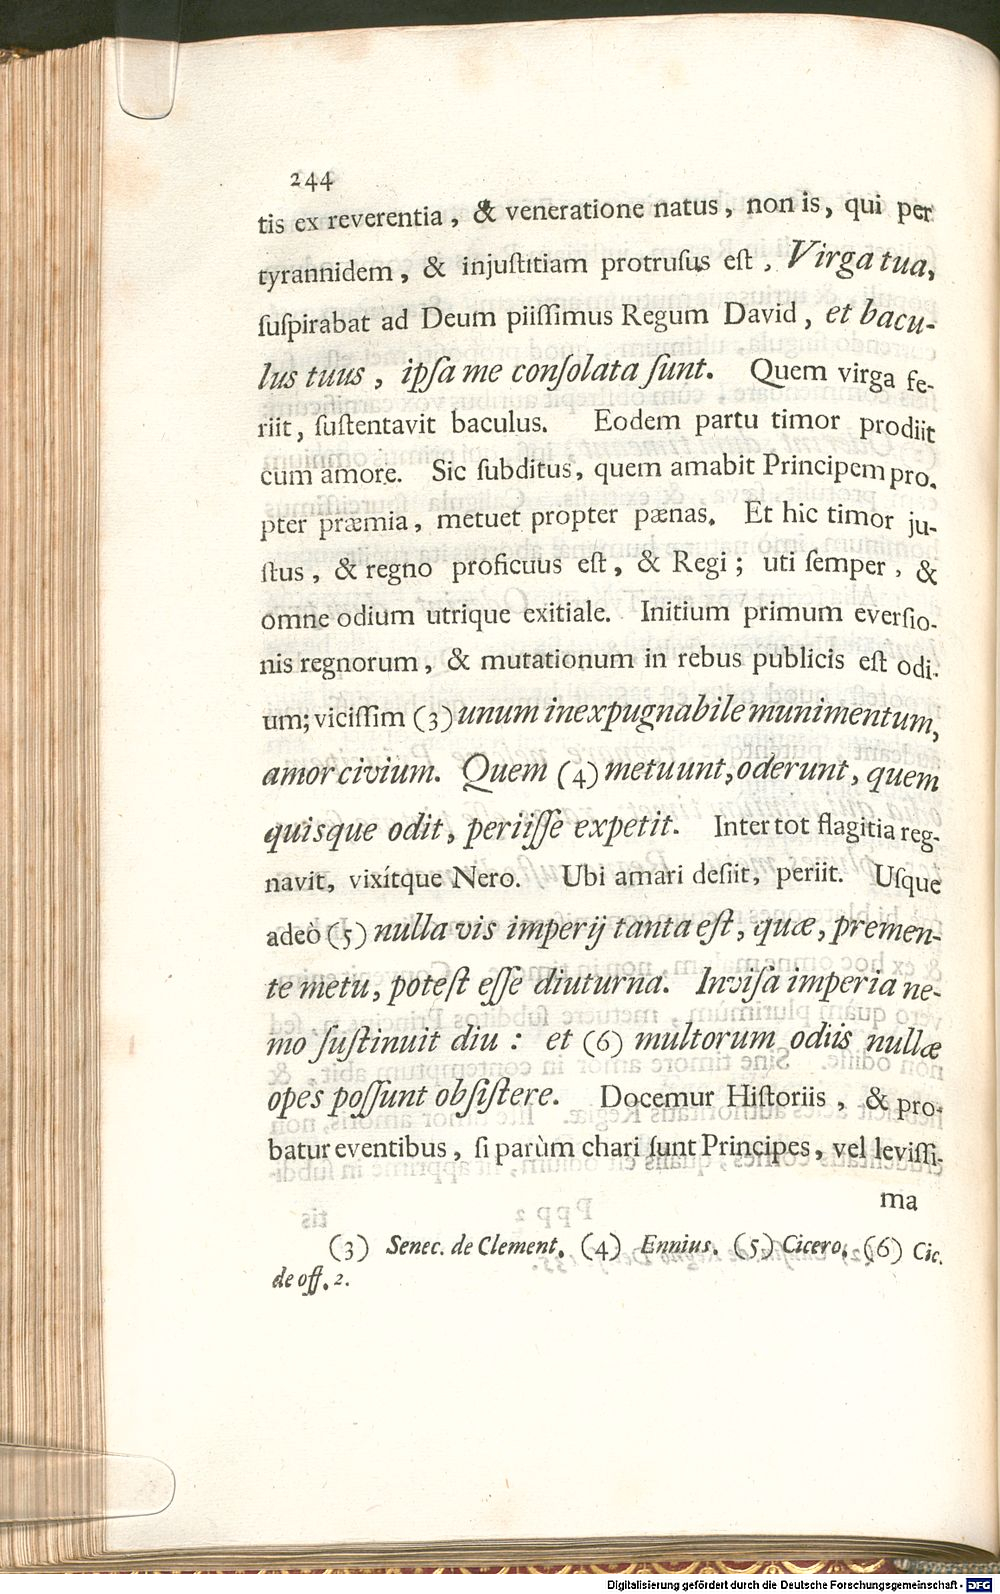 244
tis ex reverentia, & veneratione natus, non is, qui per
tyrannidem, & injuſtitiam protruſus eſt, Virga tua,
ſuſpirabat ad Deum piiſſimus Regum David, et bacu-
lus tuus, ipſa me conſolata ſunt. Quem virga fe-
riit, ſuſtentavit baculus. Eodem partu timor prodiit
cum amore. Sic ſubditus, quem amabit Principem pro-
pter præmia, metuet propter pænas. Et hic timor ju-
ſtus, & regno proficuus eſt, & Regi; uti ſemper, &
omne odium utrique exitiale. Initium primum everſio-
nis regnorum, & mutationum in rebus publicis eſt odi-
um; viciſſim (3) unum inexpugnabile munimentum,
amor civium. Quem (4) metuunt, oderunt, quem
quisque odit, periiſſe expetit. Inter tot flagitia reg-
navit, vixitque Nero. Ubi amari deſiit, periit. Uſque
adeò (5) nulla vis imperij tanta eſt, quæ, premen-
te metu, poteſt eſſe diuturna. Inviſa imperia ne-
mo ſuſtinuit diu: et (6) multorum odiis nullæ
opes poſſunt obſiſtere. Docemur Hiſtoriis, & pro-
batur eventibus, ſi parùm chari ſunt Principes, vel leviſſi-
ma
(3) Senec. de Clement. (4) Ennius. (5) Cicero. (6) Cic.
de off. 2.
Digitalisierung gefördert durch die Deutsche Forschungsgemeinschaft - DFG